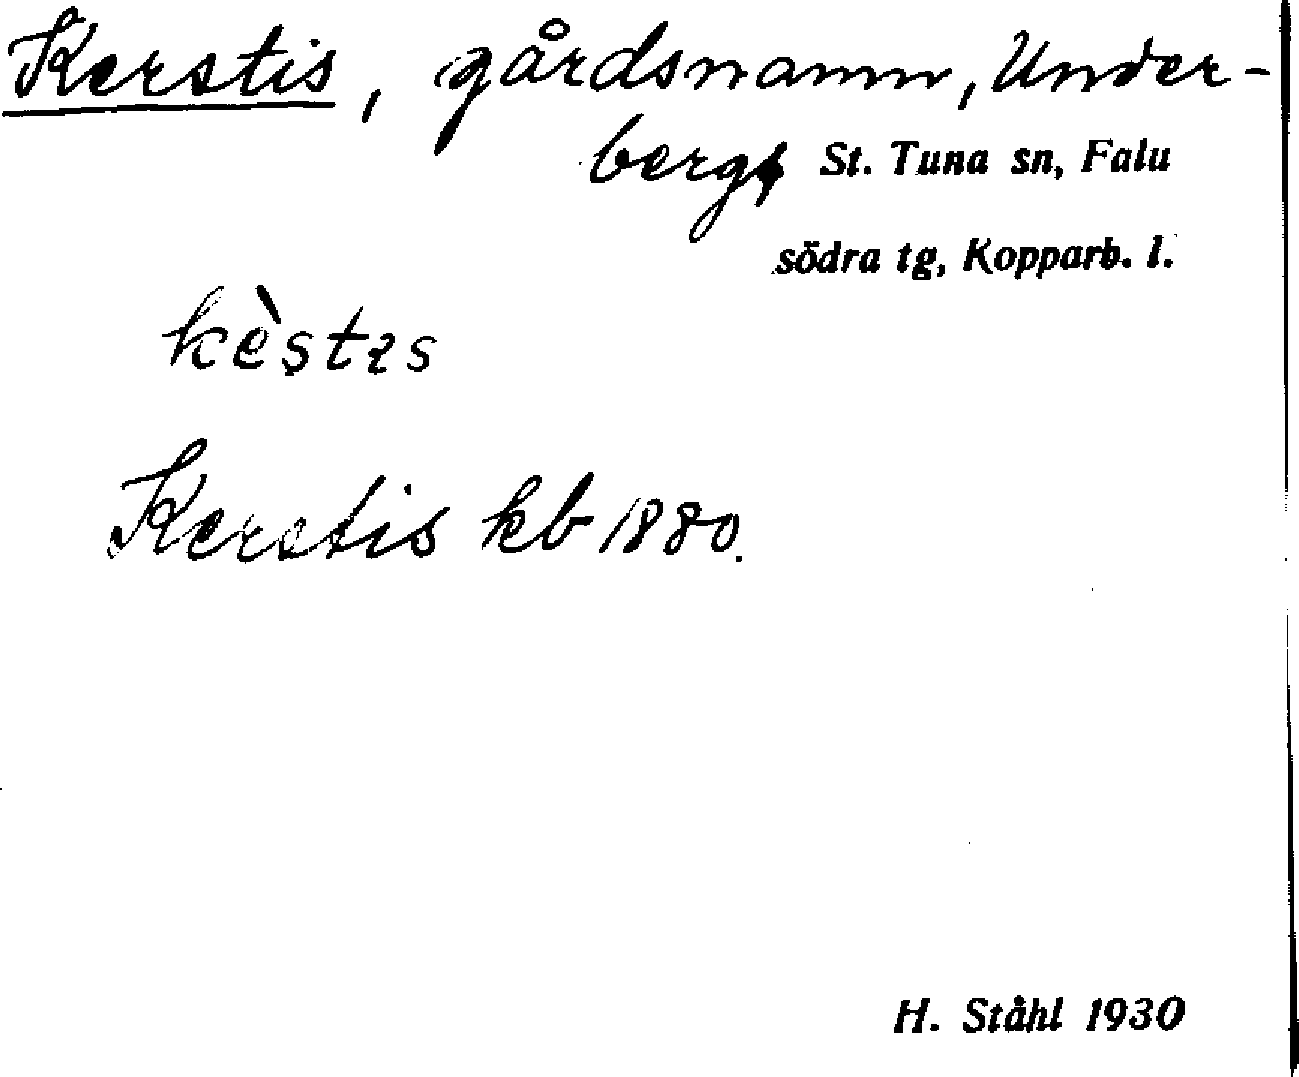 Kerstis, gårdsnamn, Under-
berg, St. Tuna sn, Falu
södra tg, Kopparb. l.
kèṣtɩs
Kerstis kb 1880.
H. Ståhl 1930